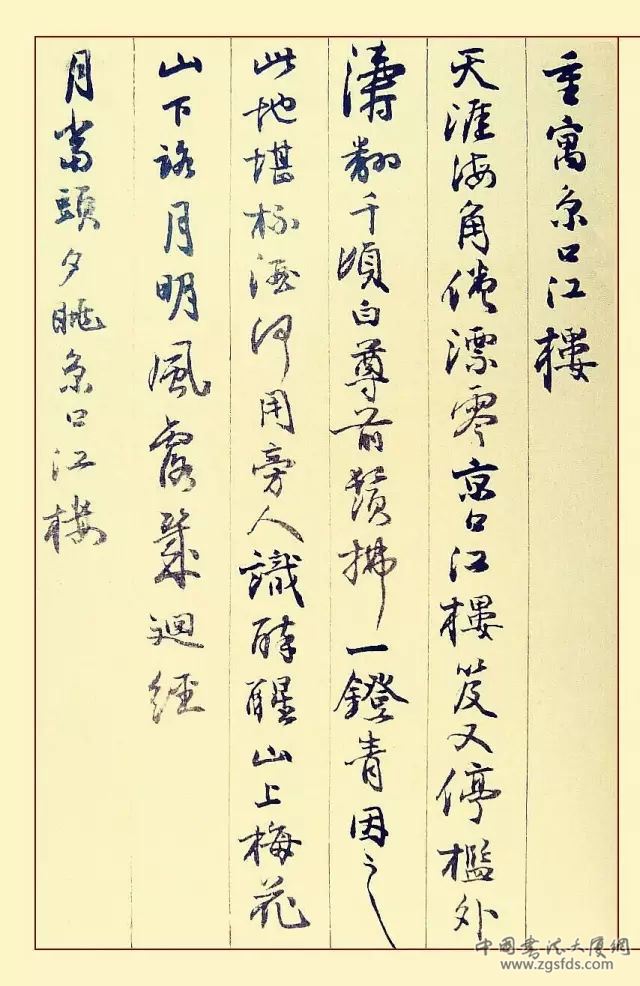 重寓京口江樓
天涯海角倦漂零京口江樓笈又停檻外
濤翻千頃白尊前鬢拂一鐙青因之
此地堪杯酒何用旁人識醉醒山上梅花
山下路月明風露幾迴經
月當頭夕眺京口江樓
中國書法大廈網
www.zgsfds.com